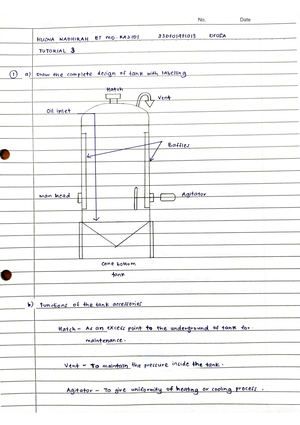 No.
Date
HUSNA NADHIRAH BT MD RAJIDI
TUTORIAL 3
① a) Draw the complete design of tank with labelling
Hatch
Vent
Oil inlet
Baffles
man head
Agitator
Cone bottom
tank
b) Functions of the tank accessories
Hatch - As an excess point to the underground of tank for
maintenance.
Vent - To maintain the pressure inside the tank.
Agitator - To give uniformity of heating or cooling process.